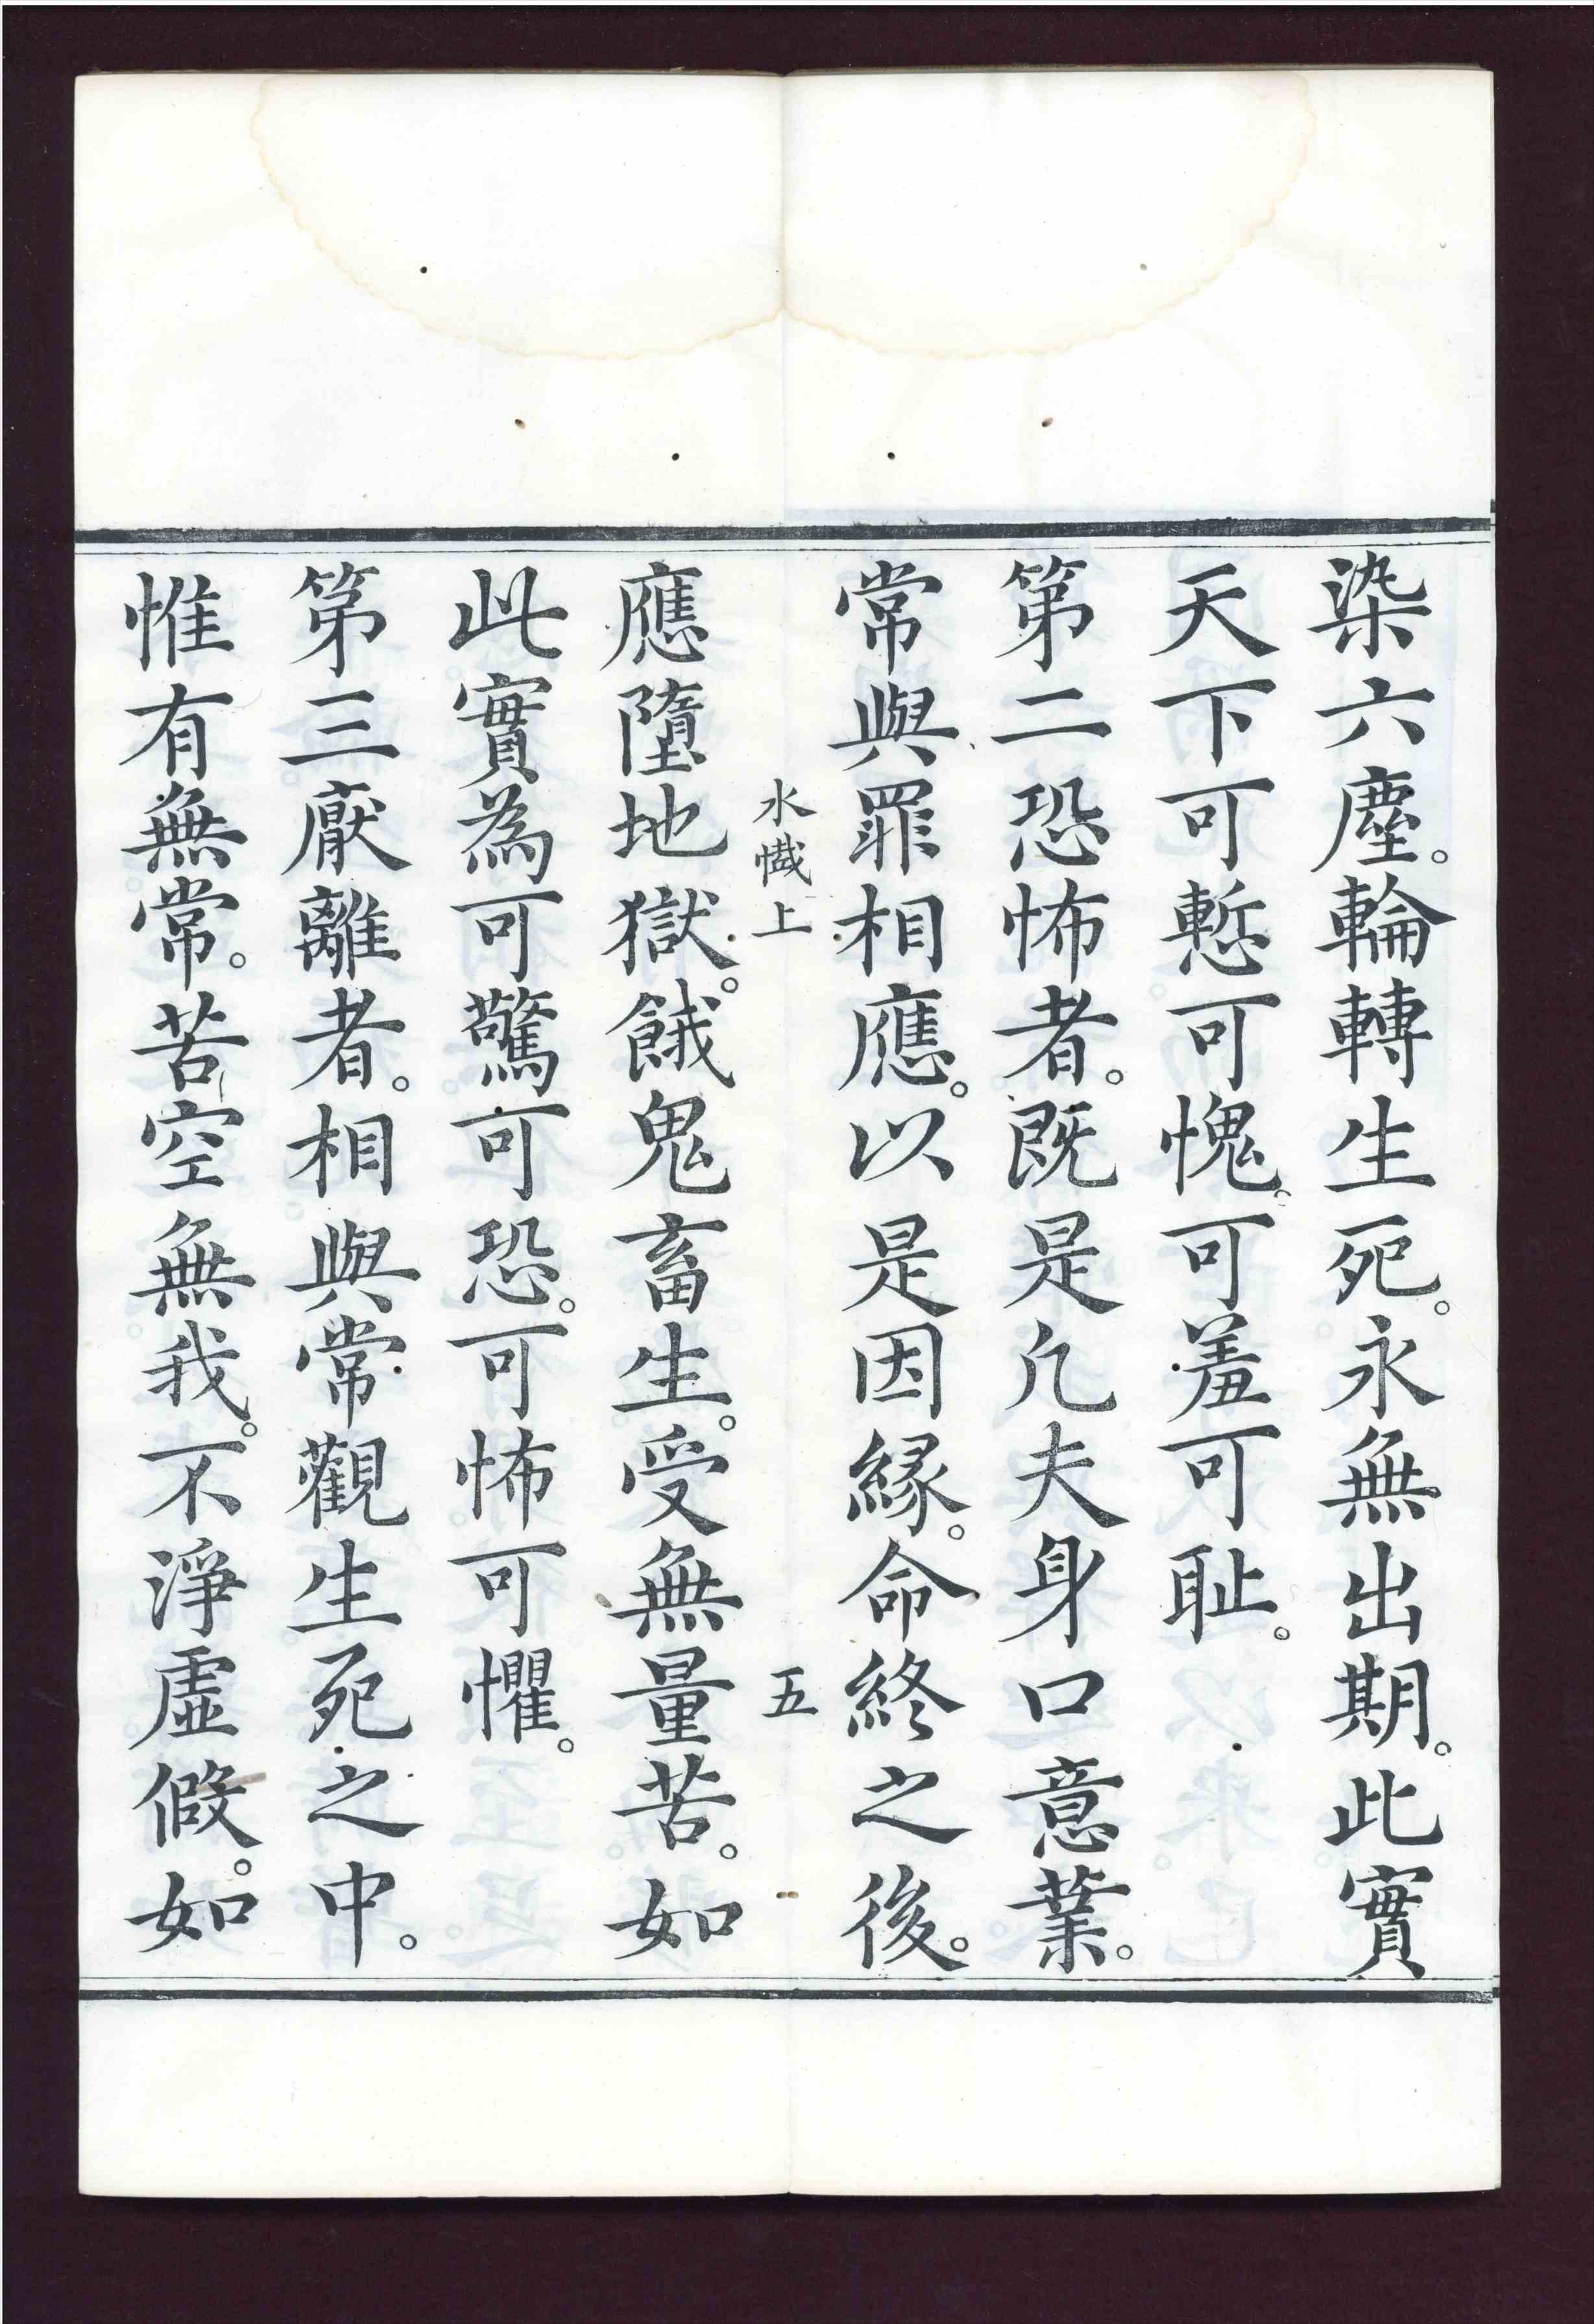 染六塵。輪轉生死。永無出期。此實
天下可慙可愧。可羞可耻。
第二恐怖者。既是凢夫身口意業。
常與罪相應。以是因緣。命終之後。
水懺上 五
應墮地獄。餓鬼畜生。受無量苦。如
此實為可驚可恐。可怖可懼。
第三厭離者。相與常觀生死之中。
惟有無常。苦空無我。不淨虛假。如